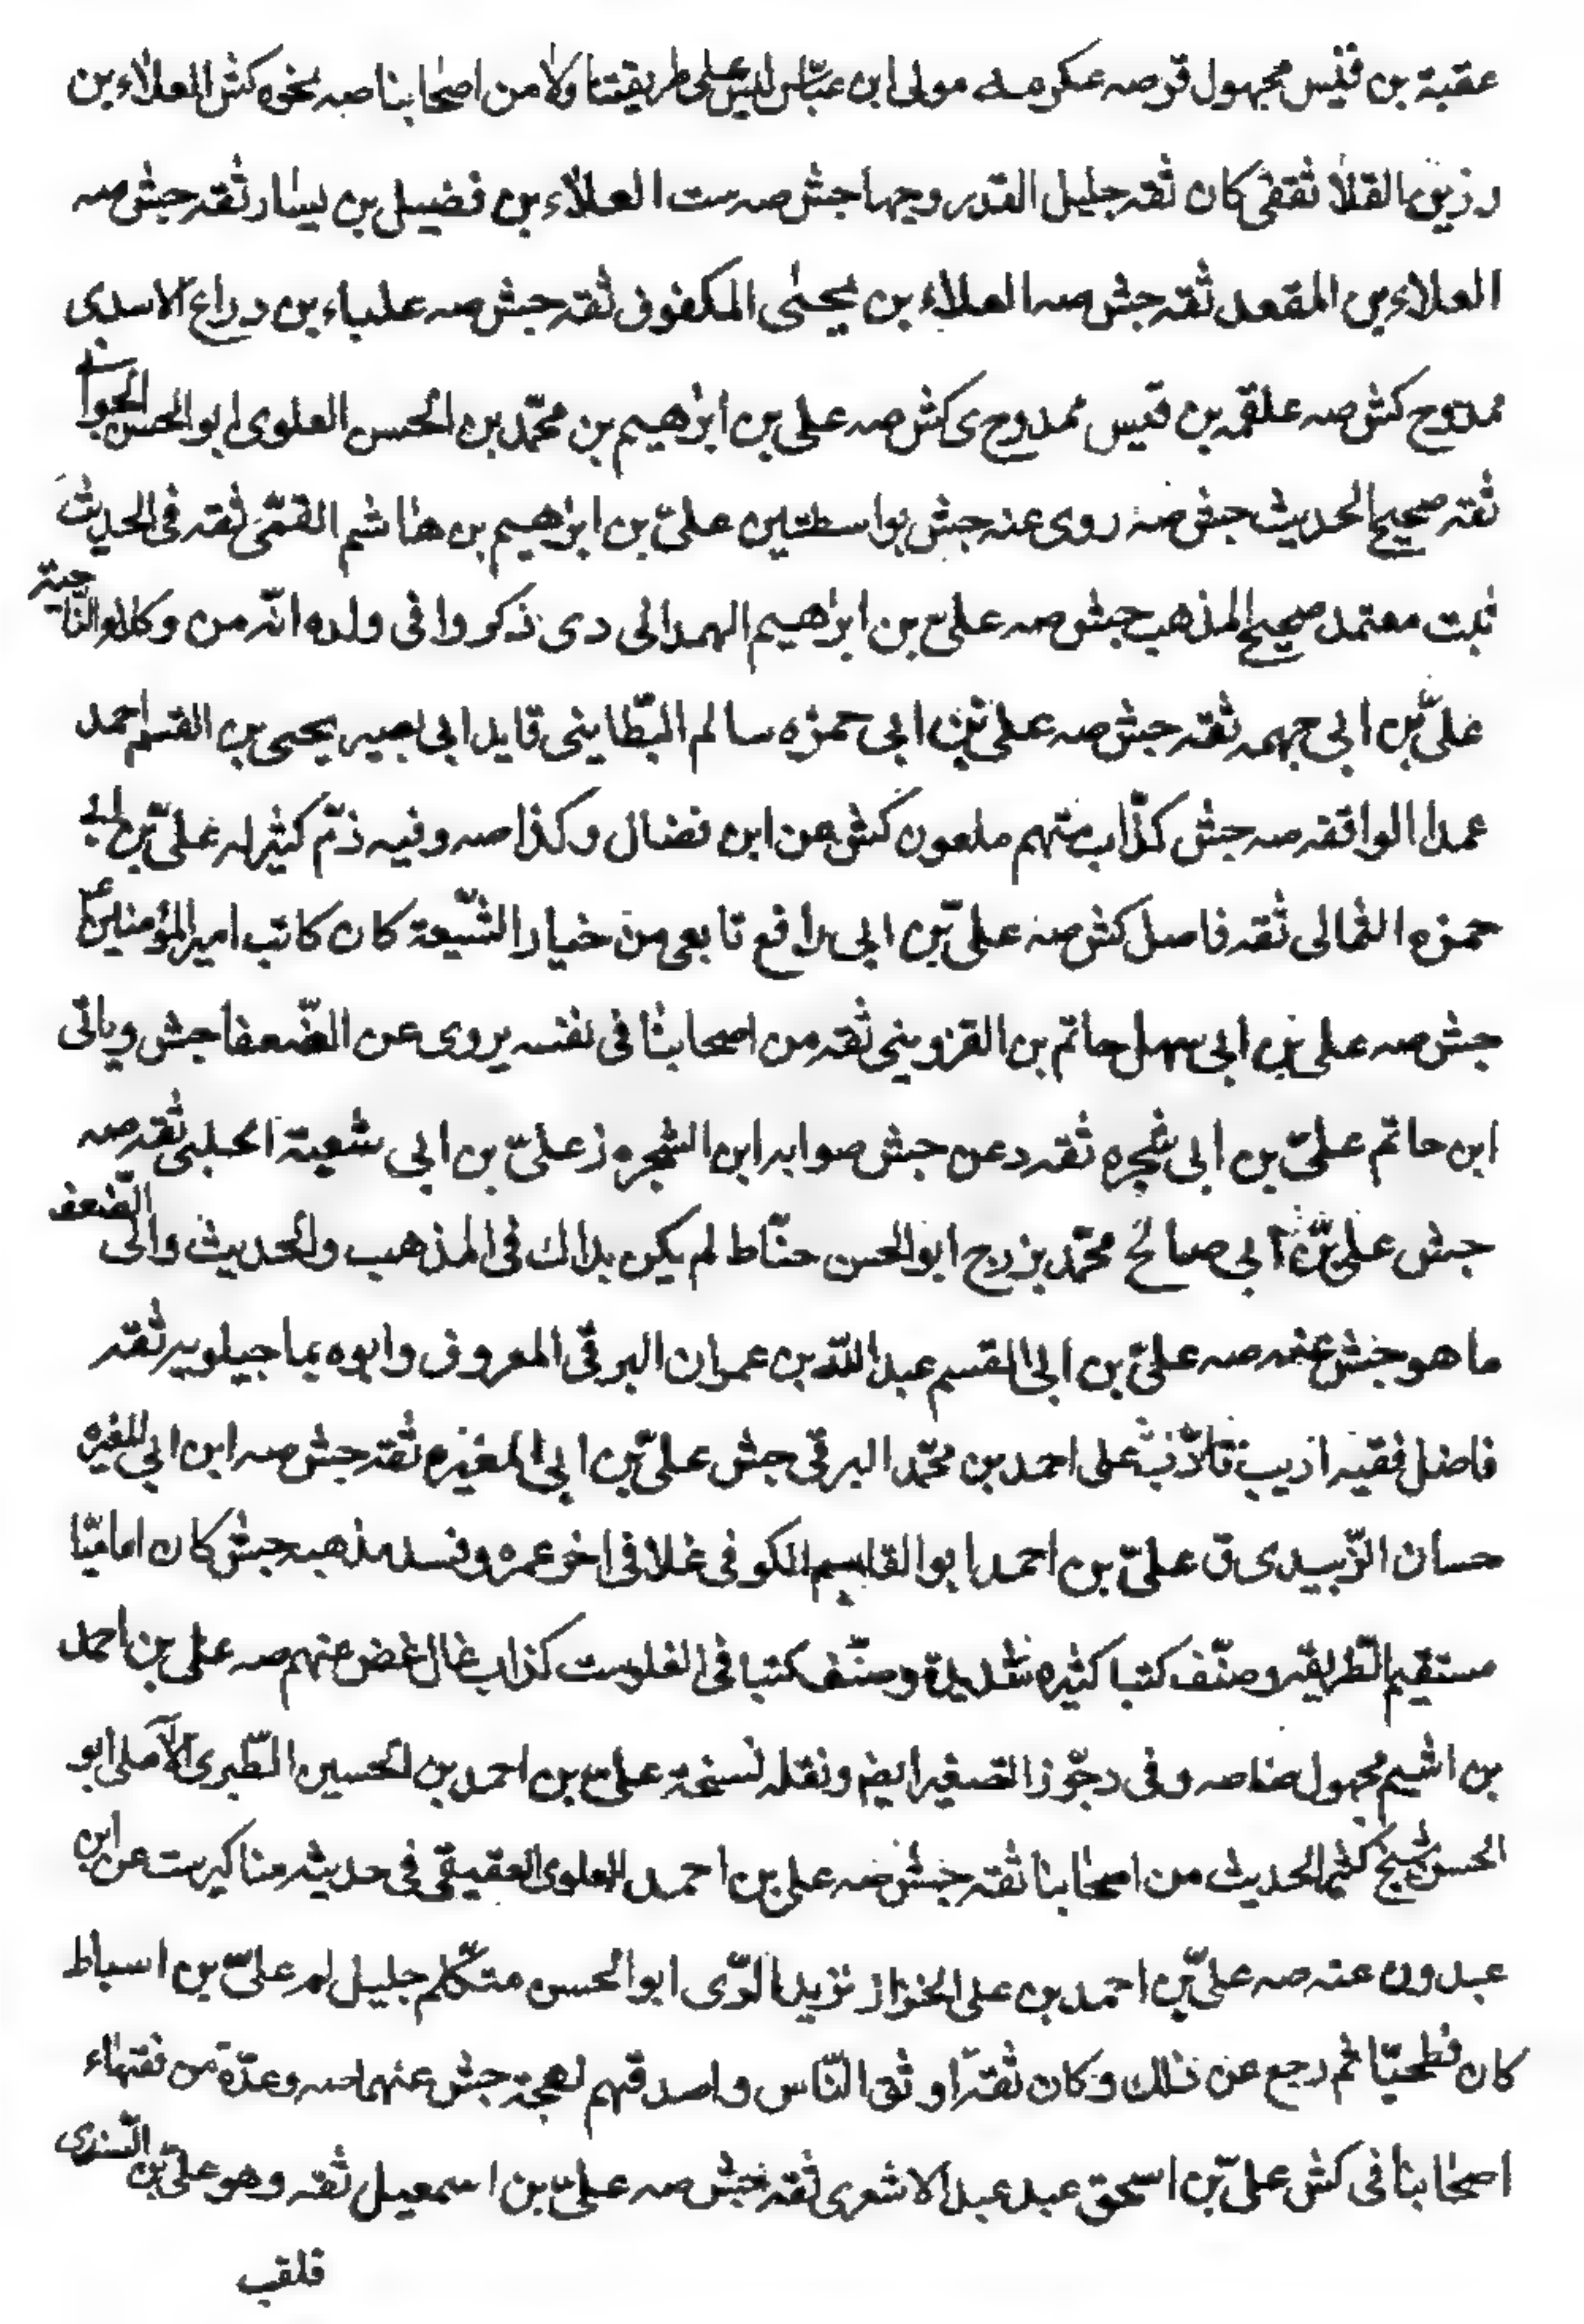 عقبة بن قيس مجهول قر صه عكرمه مولى ابن عباس ليس على طريقتنا ولا من اصحابنا صه نحوه كش العلاء بن
رزين القلا ثقفى كان ثقه جليل القدر وجها جش صه ست العلاء بن فضيل بن يسار ثقه جش صه
العلاء بن المقعد ثقه جش صه العلاء بن يحيى المكفوف ثقه جش صه علباء بن دراع الاسدى
ممدوح كش صه علقمه بن قيس ممدوح ى كش صه على بن ابرهيم بن محمد بن الحسن العلوى ابو الحسن الجوانى
ثقه صحيح الحديث جش صه روى عنه جش بواسطتين على بن ابرهيم بن هاشم القمى ثقه فى الحديث
ثبت معتمد صحيح المذهب جش صه على بن ابرهيم الهمدانى دى ذكروا فى ولده انه من وكلاء الناحية
على بن ابى جهمه ثقه جش صه على بن ابى حمزه سالم البطاينى قايد ابى بصير يحيى بن القسم احمد
عمدا الواقفه صه جش كذاب متهم ملعون كش عن ابن فضال وكذا صه وفيه ذم كثير له على بن ابى
حمزه الثمالى ثقه فاضل كش صه على بن ابى رافع تابعى من خيار الشيعة كان كاتب امير المؤمنين ع
جش صه على بن ابى سهل حاتم بن القزوينى ثقه من اصحابنا فى نفسه يروى عن الضعفا جش وياتى
ابن حاتم على بن ابى شجره ثقه د عن جش صوابه ابن الشجره ز على بن ابى شعبة الحلبى ثقه صه
جش على بن ابى صالح محمد بزرج ابو الحسن حناط لم يكن بذاك فى المذهب والحديث والى الضعف
ما هو جش عنه صه على بن ابى القسم عبد الله بن عمران البرقى المعروف وابوه بماجيلويه ثقه
فاضل فقيه اديب تادب على احمد بن محمد البرقى جش على بن ابى المغيره ثقه جش صه ابن ابى المغيره
حسان الزبيدى ق على بن احمد ابو القاسم الكوفى غلا فى اخر عمره وفسد مذهبه جش كان اماميا
مستقيم الطريقه وصنف كتبا كثيره شديدة وصنف كتبا فى الغلو ست كذاب غال غض عنهم صه على بن احمد
بن اشيم مجهول ضا صه وفى د جوز التصغير ايضم ونقله نسخة على بن احمد بن الحسين الطبرى الآملى ابو
الحسن شيخ كثير الحديث من اصحابنا ثقه جش صه على بن احمد العلوى العقيقى فى حديثه مناكير ست عن ابن
عبدون عنه صه على بن احمد بن على الخزاز نزيد الرى ابو الحسن متكلم جليل لم على بن اسباط
كان فطحيا ثم رجع عن ذلك وكان ثقة اوثق الناس واصدقهم لهجة جش عنهما صه وعدة من فقهاء
اصحابنا فى كش على بن اسحق عبد عبد الاشعرى ثقه جش صه على بن اسمعيل ثقه وهو على بن السندى
فلقب